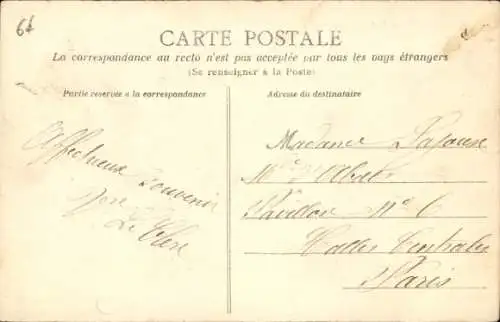 6x
CARTE POSTALE
La correspondance au recto n'est pas acceptée par tous les pays étrangers
(Se renseigner à la Poste)
Partie reservée à la correspondance
Adresse du destinataire
Affectueux Souvenir
Madame
Pavillon No 6
Halles Centrales
Paris